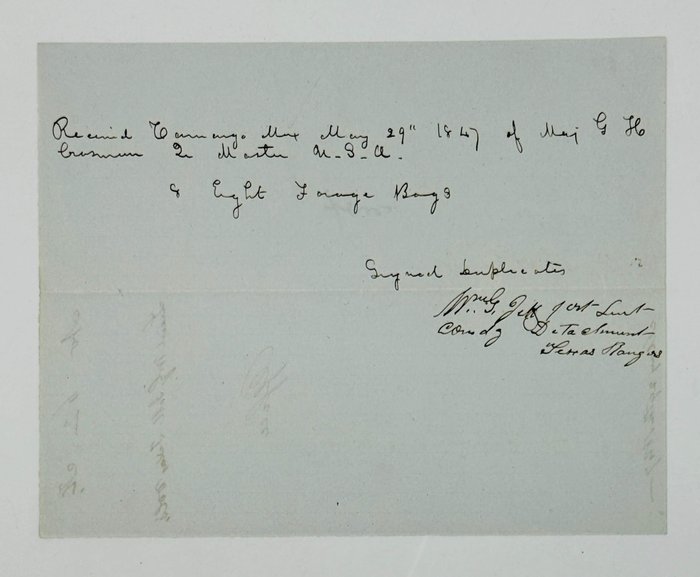 Received Camargo Mex May 29" 1847 of Maj G H
Crosman Qr Master U.S.A.
8 Eight Forage Bags
Signed Duplicates
Wm G. Jett first Lieut
Comdg Detachment
Texas Rangers